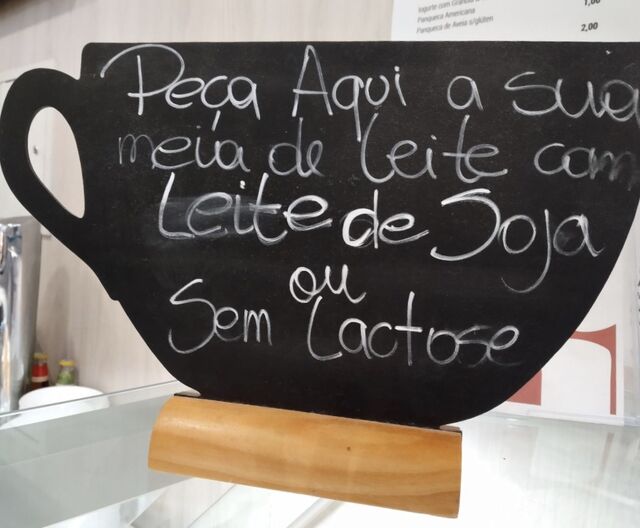 Iogurte com Granola
1,00
Panqueca Americana
Panqueca de Aveia s/glúten
2,00
Peça Aqui a sua
meia de leite com
Leite de Soja
ou
Sem Lactose